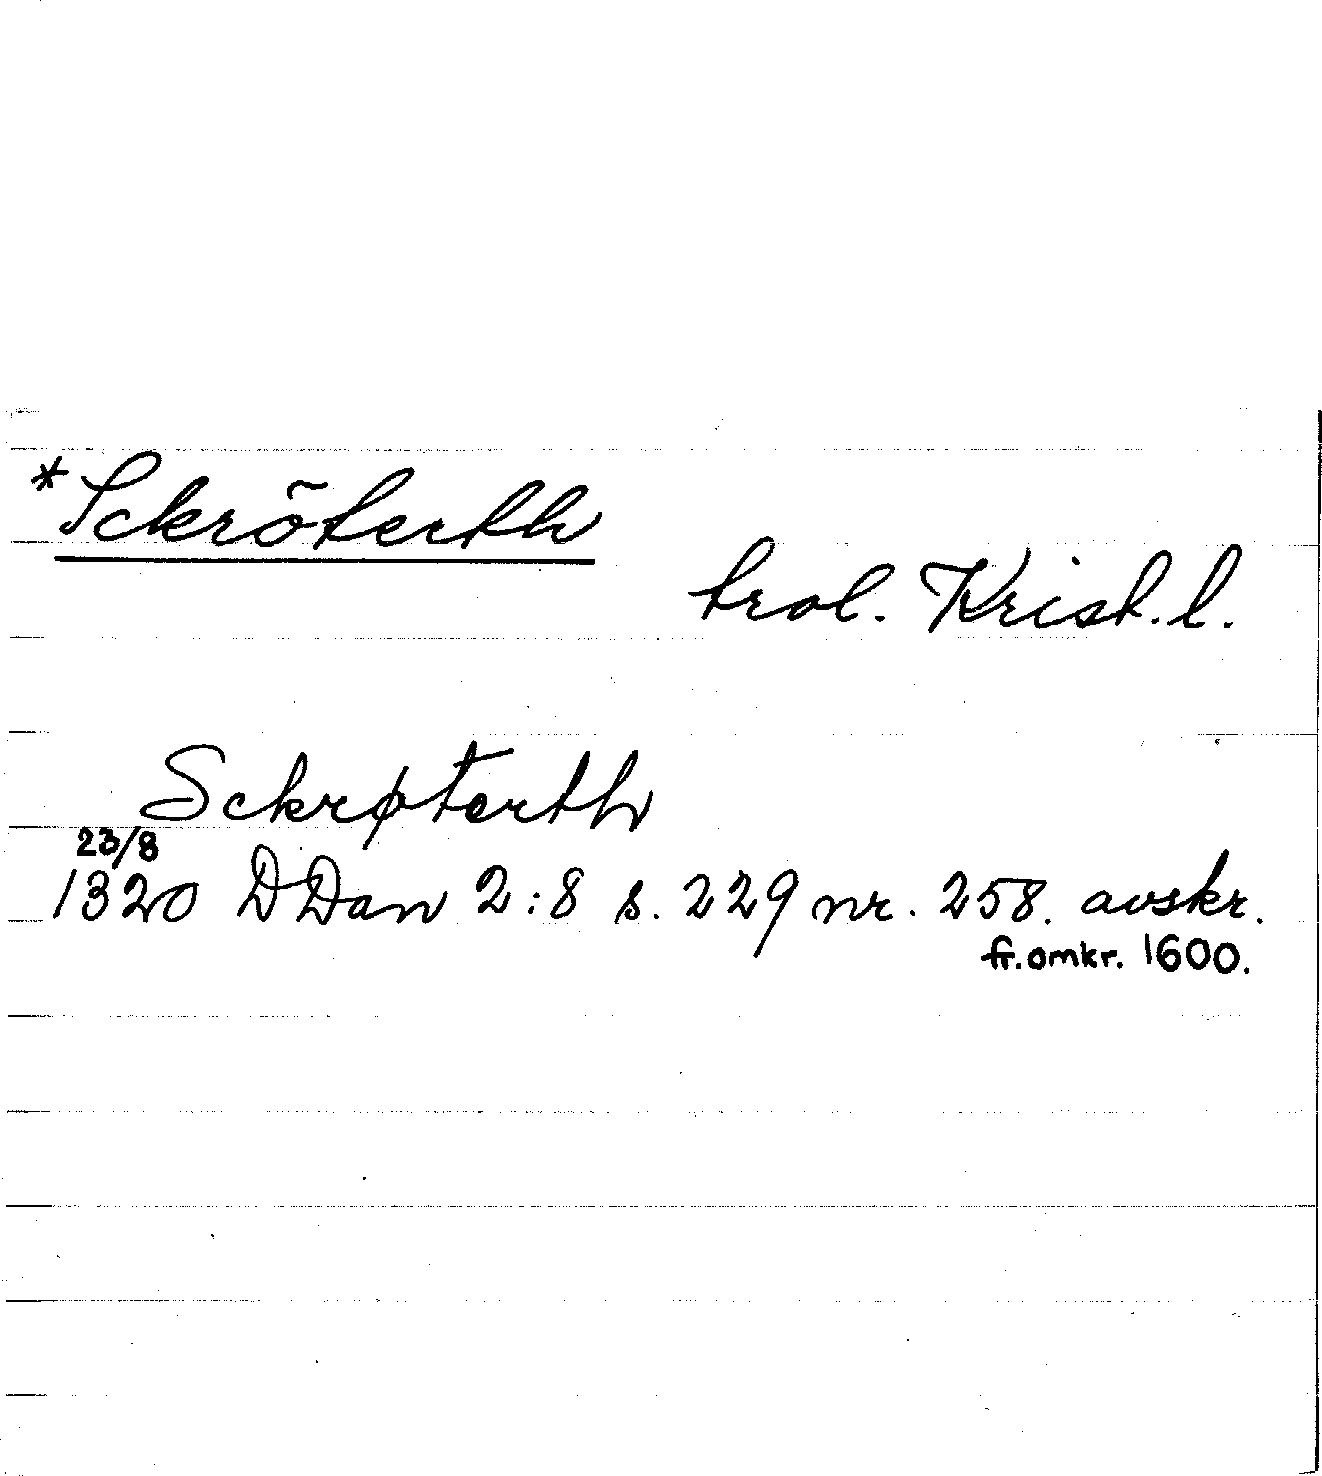 *Sckröterth
trol. Krist. l.
Sckrøterth
23/8
1320 DDan 2:8 s. 229 nr. 258. avskr.
fr. omkr. 1600.